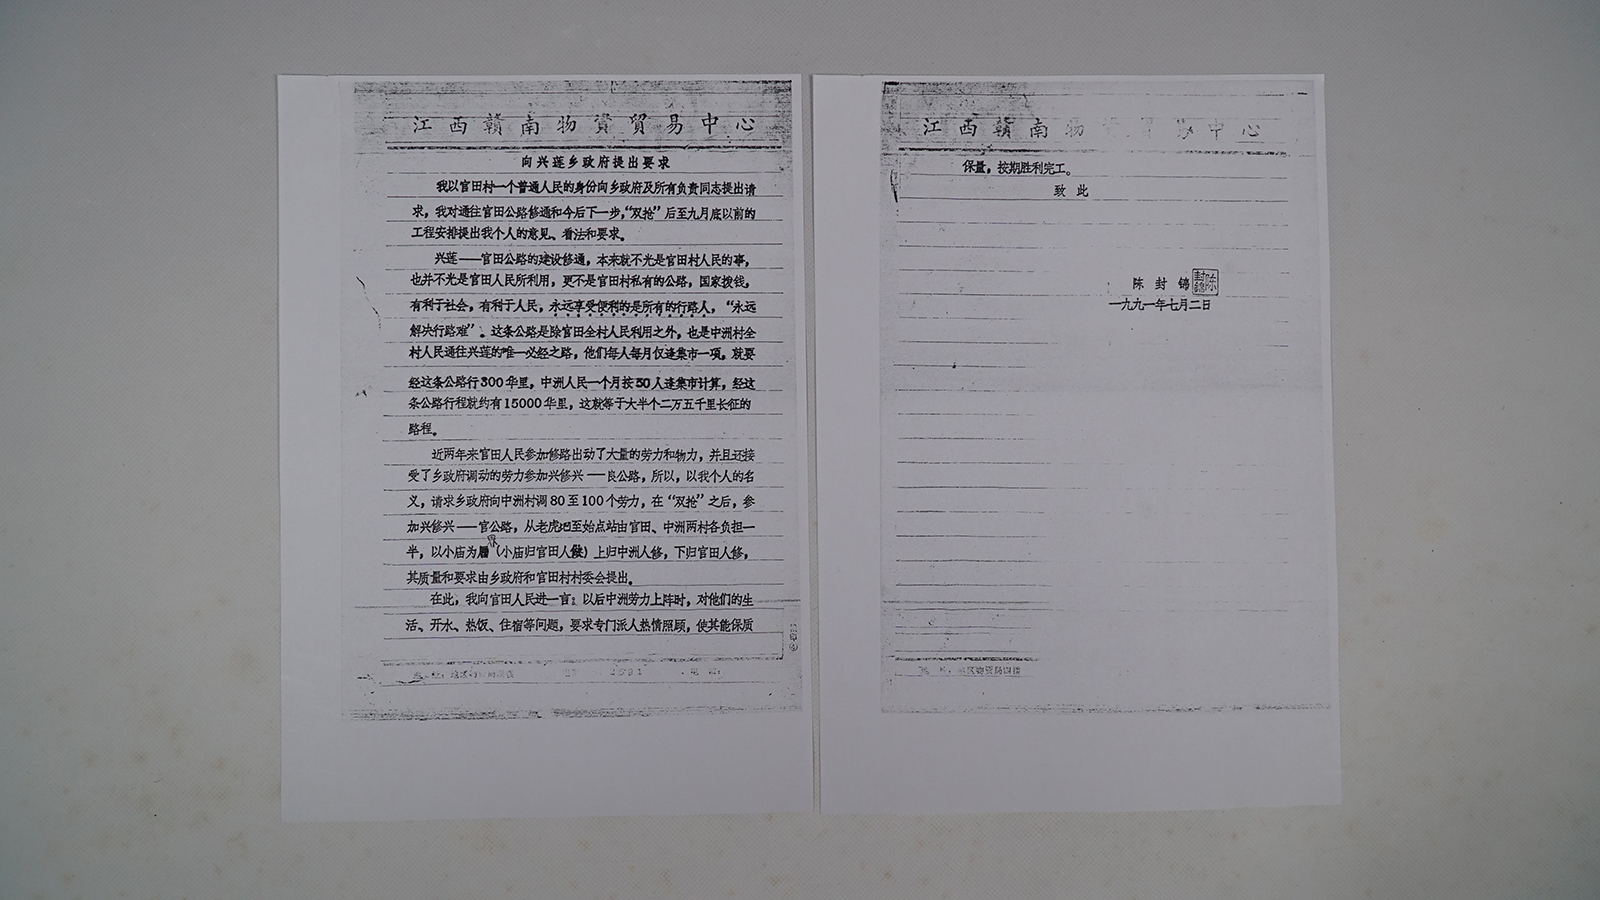 江西赣南物資貿易中心
向兴莲乡政府提出要求
我以官田村一个普通人民的身份向乡政府及所有负责同志提出请
求，我对通往官田公路修通和今后下一步，“双抢”后至九月底以前的
工程安排提出我个人的意见、看法和要求。
兴莲——官田公路的建设修通，本来就不光是官田村人民的事，
也并不光是官田人民所利用，更不是官田村私有的公路，国家拨钱，
有利于社会，有利于人民，永远享受便利的是所有的行路人，“永远
解决行路难”。这条公路是除官田全村人民利用之外，也是中洲村全
村人民通往兴莲的唯一必经之路，他们每人每月仅逢集市一项，就要
经这条公路行300华里，中洲人民一个月按50人逢集市计算，经这
条公路行程就约有15000华里，这就等于大半个二万五千里长征的
路程。
近两年来官田人民参加修路出动了大量的劳力和物力，并且还接
受了乡政府调动的劳力参加兴修兴——良公路，所以，以我个人的名
义，请求乡政府向中洲村调80至100个劳力，在“双抢”之后，参
加兴修兴——官公路，从老虎至始点站由官田、中洲两村各负担一
半，以小庙为界（小庙归官田人做）上归中洲人修，下归官田人修，
其质量和要求由乡政府和官田村村委会提出。
在此，我向官田人民进一言：以后中洲劳力上阵时，对他们的生
活、开水、热饭、住宿等问题，要求专门派人热情照顾，使其能保质
2991
江西赣南物資貿易中心
保量，按期胜利完工。
致此
陈封锦
陈封锦
一九九一年七月二日